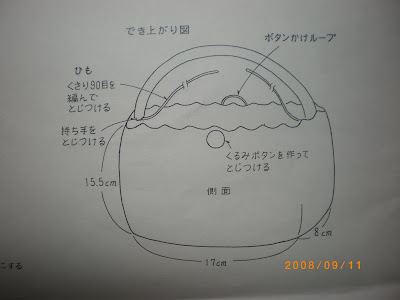 でき上がり図
ボタンかけループ
ひも
くさり90目を
編んで
とじつける
持ち手を
とじつける
くるみボタンを作って
とじつける
15.5cm
側面
8cm
17cm
こする
2008/09/11